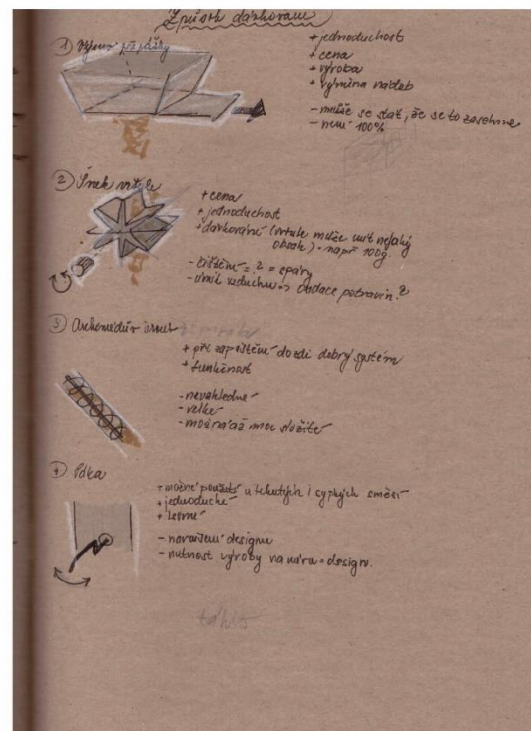 Způsob dávkování
1) Výsuv přepážky
+ jednoduchost
+ cena
+ výroba
+ výměna nádob
- může se stát, že se to zasekne
- není 100%
2) Šnek vrtule
+ cena
+ jednoduchost
+ dávkování (vrtule může mít nějaký
obsah) - např 100g
- čištění = ? = spáry
- vnik vzduchu => oxidace potravin?
3) Archimédův šroub
+ při zapuštění do zdi dobrý systém
+ funkčnost
- nevzhledné
- velké
- možná až moc složité
4) Páka
+ možné použití u tekutých i sypkých směsí
+ jednoduché
+ levné
- narušení designu
- nutnost výroby na míru = design.
táhlo